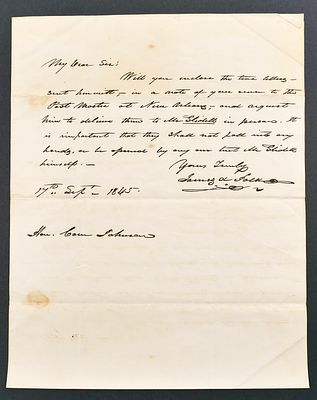 My Dear Sir:
Will you enclose the two letters
sent herewith, in a note of your own to the
Post Master at New Orleans, and request
him to deliver them to Mr Slidell in person. It
is important that they shall not fall into any
hands, or be opened by any one but Mr Slidell
himself.—
Yours Truly
James K. Polk
17th. Sept. 1845.
Hon. Cave Johnson